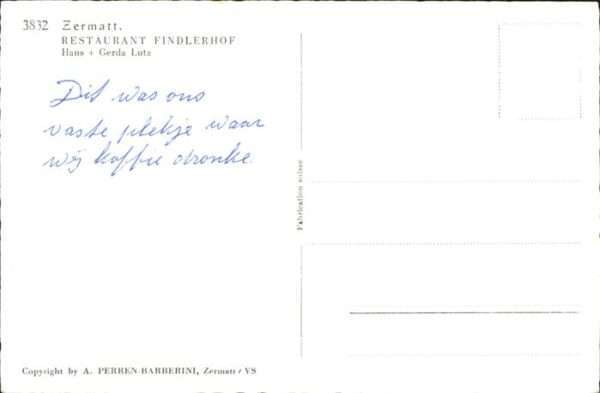 3832 Zermatt.
RESTAURANT FINDLERHOF
Hans + Gerda Lutz
Dit was ons
vaste plekje waar
wij koffie dronke
Fabrication suisse
Copyright by A. PERREN-BARBERINI, Zermatt / VS